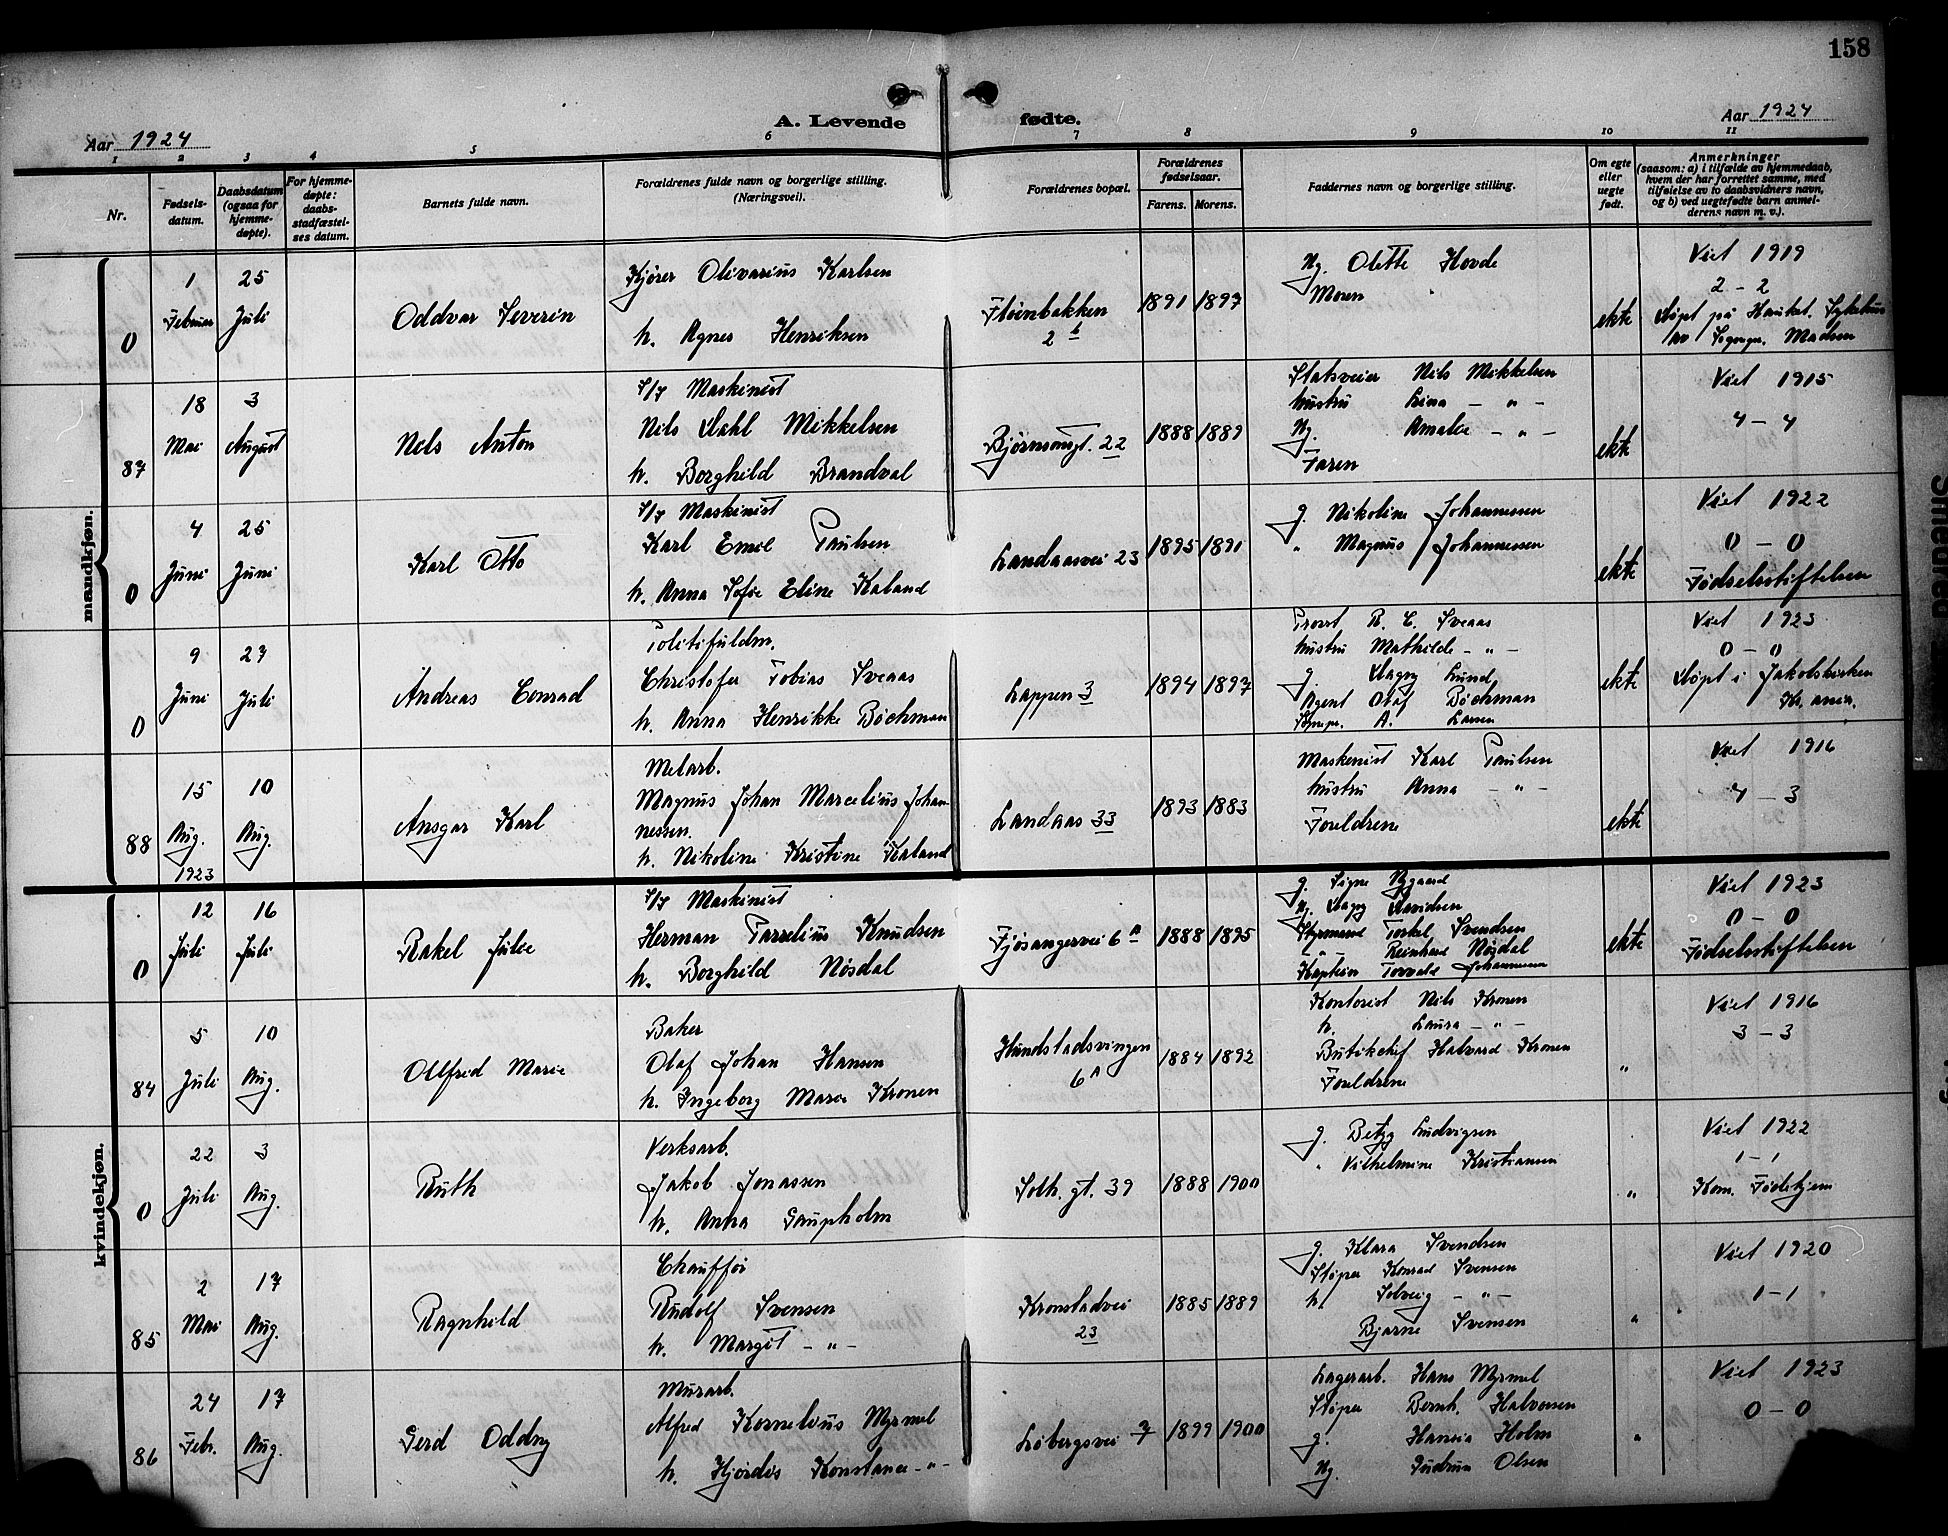 158
A. Levende fødte.
Aar 1924
Aar 1924
1 2 3 4 5 6 7 8 9 10 11
Nr.
Fødsels-
datum.
Daabsdatum
(ogsaa for
hjemme-
døpte).
For hjemme-
døpte:
daabs-
stadfæstel-
ses datum.
Barnets fulde navn.
Forældrenes fulde navn og borgerlige stilling.
(Næringsvei).
Forældrenes bopæl.
Forældrenes
fødselsaar.
Farens. Morens.
Faddernes navn og borgerlige stilling.
Om egte
eller
uegte
født.
Anmerkninger
(saasom: a) i tilfælde av hjemmedaab,
hvem der har forrettet samme, med
tilføielse av to daabsvidners navn,
og b) ved uegtefødte barn anmel-
derens navn m. v.).
mandkjøn.
0
1
Februar
25
Juli
Oddvar Severin
Kjører Olivarius Karlsen
h. Agnes Henriksen
Fløienbakken
2 b
1891 1897
Ng. Olette Hovde
Moren
ekte
Viet 1919
2 - 2
Døpt på Haukel. Sykehus
av Sogнepr. Madsen
87
18
Mai
3
August
Nils Anton
S/S Maskinist
Nils Dahl Mikkelsen
h. Borghild Brandval
Bjørnsonsgt. 22
1888 1889
Statsveier Nils Mikkelsen
hustru Lina - " -
Ng. Amalie - " -
Faren
ekte
Viet 1915
4 - 4
0
4
Juni
25
Juni
Karl Otto
S/S Maskinist
Karl Emil Paulsen
h. Anna Sofie Eline Kaland
Landaasvei 23
1895 1891
g. Nikoline Johannessen
" Magnus Johannessen
ekte
Viet 1922
0 - 0
Fødselsstiftelsen
0
9
Juni
23
Juli
Andreas Conrad
Politifuldm.
Christofer Tobias Sveaas
h. Anna Henrikke Böchman
Lappen 3
1894 1897
Provst R. C. Sveaas
hustru Mathilde - " -
g. Dagny Lund
Agent Olaf Böchman
Sognepr. A. Larsen
ekte
Viet 1923
0 - 0
Døpt i Jakobskirken
Kr.ania.
88
15
Aug.
1923
10
Aug.
Ansgar Karl
Melarb.
Magnus Johan Marcelius Johan
nessen.
h. Nikoline Kristine Kaland
Landaas 33
1893 1883
Maskinist Karl Paulsen
hustru Anna - " -
Foreldrene
ekte
Viet 1916
4 - 3
kvindekjøn.
0
12
Juli
16
Juli
Rakel Julie
S/S Maskinist
Herman Parelius Knudsen
h. Borghild Nøsdal
Fjøsangervei 6 A
1888 1895
g. Signe Nygaard
Ng. Dagny Davidsen
Styrmand Torkel Svendsen
- " - Reinhard Nøsdal
Kaptein Torvald Johannessen
ekte
Viet 1923
0 - 0
Fødselsstiftelsen
84
5
Juli
10
Aug.
Ollfrid Marie
Baker
Olaf Johan Hansen
h. Ingeborg Marie Kronen
Hundstadsvingen
6 A
1884 1892
Kontorist Nils Kronen
h. Laura - " -
Butikchef Halvard Kronen
Foreldrene
"
Viet 1916
3 - 3
0
22
Juli
3
Aug.
Ruth
Verksarb.
Jakob Jonassen
h. Anna Gaupholm
Solh. gt. 39
1888 1900
g. Betzy Ludvigsen
" Vilhelmine Kristiansen
"
Viet 1922
1 - 1
Kom. Fødehjem
85
2
Mai
17
Aug.
Ragnhild
Chauffør
Rudolf Svensen
h. Margit - " -
Kronstadvei
23
1885 1889
g. Klara Svendsen
Støper Konrad Svensen
h. Solveig - " -
Bjarne Svensen
"
Viet 1920
1 - 1
86
24
Febr.
17
Aug.
Gerd Oddny
Murarb.
Alfred Kornelius Myrmel
h. Hjørdis Konstance - " -
Løbergsvei 7
1899 1900
Lagerarb. Hans Myrmel
Støper Bernh. Halvorsen
g. Hansia Holm
Ng. Gudrun Olsen
"
Viet 1923
0 - 0